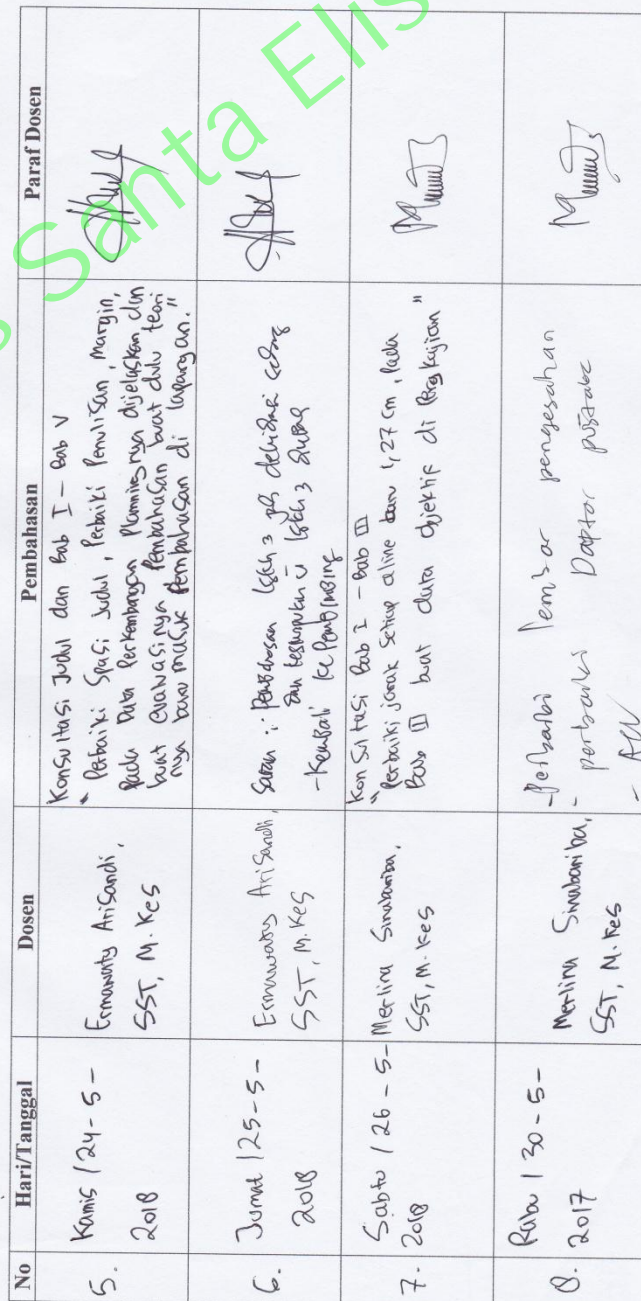 Santa Elis
No Hari/Tanggal Dosen Pembahasan Paraf Dosen
5. Kamis / 24 - 5 - 2018
Ermawaty Arisandi,
SST, M. Kes
Konsultasi Judul dan Bab I - Bab V
" Perbaiki Spasi Judul, Perbaiki Penulisan, Margin,
Pada Data Perkembangan Planningnya dijelaskan dan
buat evaluasinya Pembahasan buat dulu teori
nya baru masuk Pembahasan di lapangan."
6. Jumat / 25 - 5 -
2018
Ermawaty Arisandi,
SST, M. Kes
Saran : Pembahasan
dan kesimpulan
- Kembali ke Pembimbing
7. Sabtu / 26 - 5 -
2018
Merlina Sinabariba,
SST, M. Kes
Konsultasi Bab I - Bab III
"Perbaiki jarak Setiap aline 1,27 cm, Pada
Bab III buat data objektif di Pengkajian "
8. Rabu / 30 - 5 -
2017
Merlina Sinabariba,
SST, M. Kes
- Perbaiki lembar pengesahan
- perbaiki Daptar pustaka
- ACC